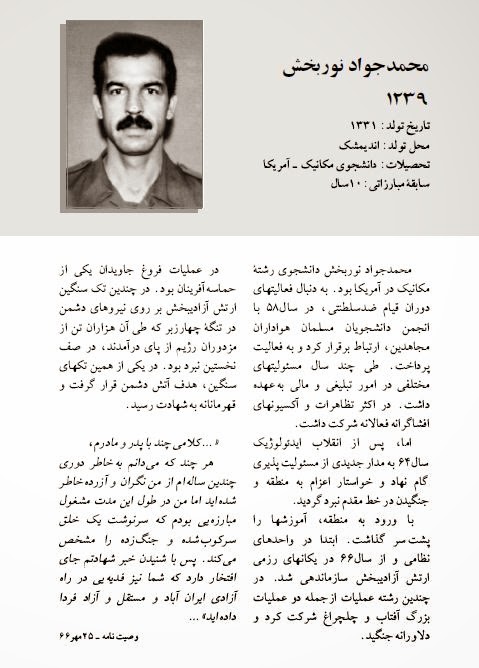 محمدجواد نوربخش
۱۲۳۹
تاریخ تولد: ۱۳۳۱
محل تولد: اندیمشک
تحصیلات: دانشجوی مکانیک ـ آمریکا
سابقهٔ مبارزاتی: ۱۰سال
محمدجواد نوربخش دانشجوی رشتهٔ
مکانیک در آمریکا بود. به دنبال فعالیتهای
دوران قیام ضدسلطنتی، در سال۵۸ با
انجمن دانشجویان مسلمان هواداران
مجاهدین، ارتباط برقرار کرد و به فعالیت
پرداخت. طی چند سال مسئولیتهای
مختلفی در امور تبلیغی و مالی به‌عهده
داشت. در اکثر تظاهرات و آکسیونهای
افشاگرانه فعالانه شرکت داشت.
اما، پس از انقلاب ایدئولوژیک
سال۶۴ به مدار جدیدی از مسئولیت پذیری
گام نهاد و خواستار اعزام به منطقه و
جنگیدن در خط مقدم نبرد گردید.
با ورود به منطقه، آموزشها را
پشت‌سر گذاشت. ابتدا در واحدهای
نظامی و از سال۶۶ در یکانهای رزمی
ارتش آزادیبخش سازماندهی شد. در
چندین رشته عملیات ازجمله دو عملیات
بزرگ آفتاب و چلچراغ شرکت کرد و
دلاورانه جنگید.
در عملیات فروغ جاویدان یکی از
حماسه‌آفرینان بود. در چندین تک سنگین
ارتش آزادیبخش بر روی نیروهای دشمن
در تنگهٔ چهارزبر که طی آن هزاران تن از
مزدوران رژیم از پای درآمدند، در صف
نخستین نبرد بود. در یکی از همین تکهای
سنگین، هدف آتش دشمن قرار گرفت و
قهرمانانه به‌شهادت رسید.
«...کلامی چند با پدر و مادرم،
هر چند که می‌دانم به‌خاطر دوری
چندین ساله‌ام از من نگران و آزرده خاطر
شده‌اید اما من در طول این مدت مشغول
مبارزه‌یی بودم که سرنوشت یک خلق
سرکوب‌شده و جنگ‌زده را مشخص
می‌کند. پس با شنیدن خبر شهادتم جای
افتخار دارد که شما نیز فدیه‌یی در راه
آزادی ایران آباد و مستقل و آزاد فردا
داده‌اید»...
وصیت‌نامه ـ ۲۵مهر۶۶